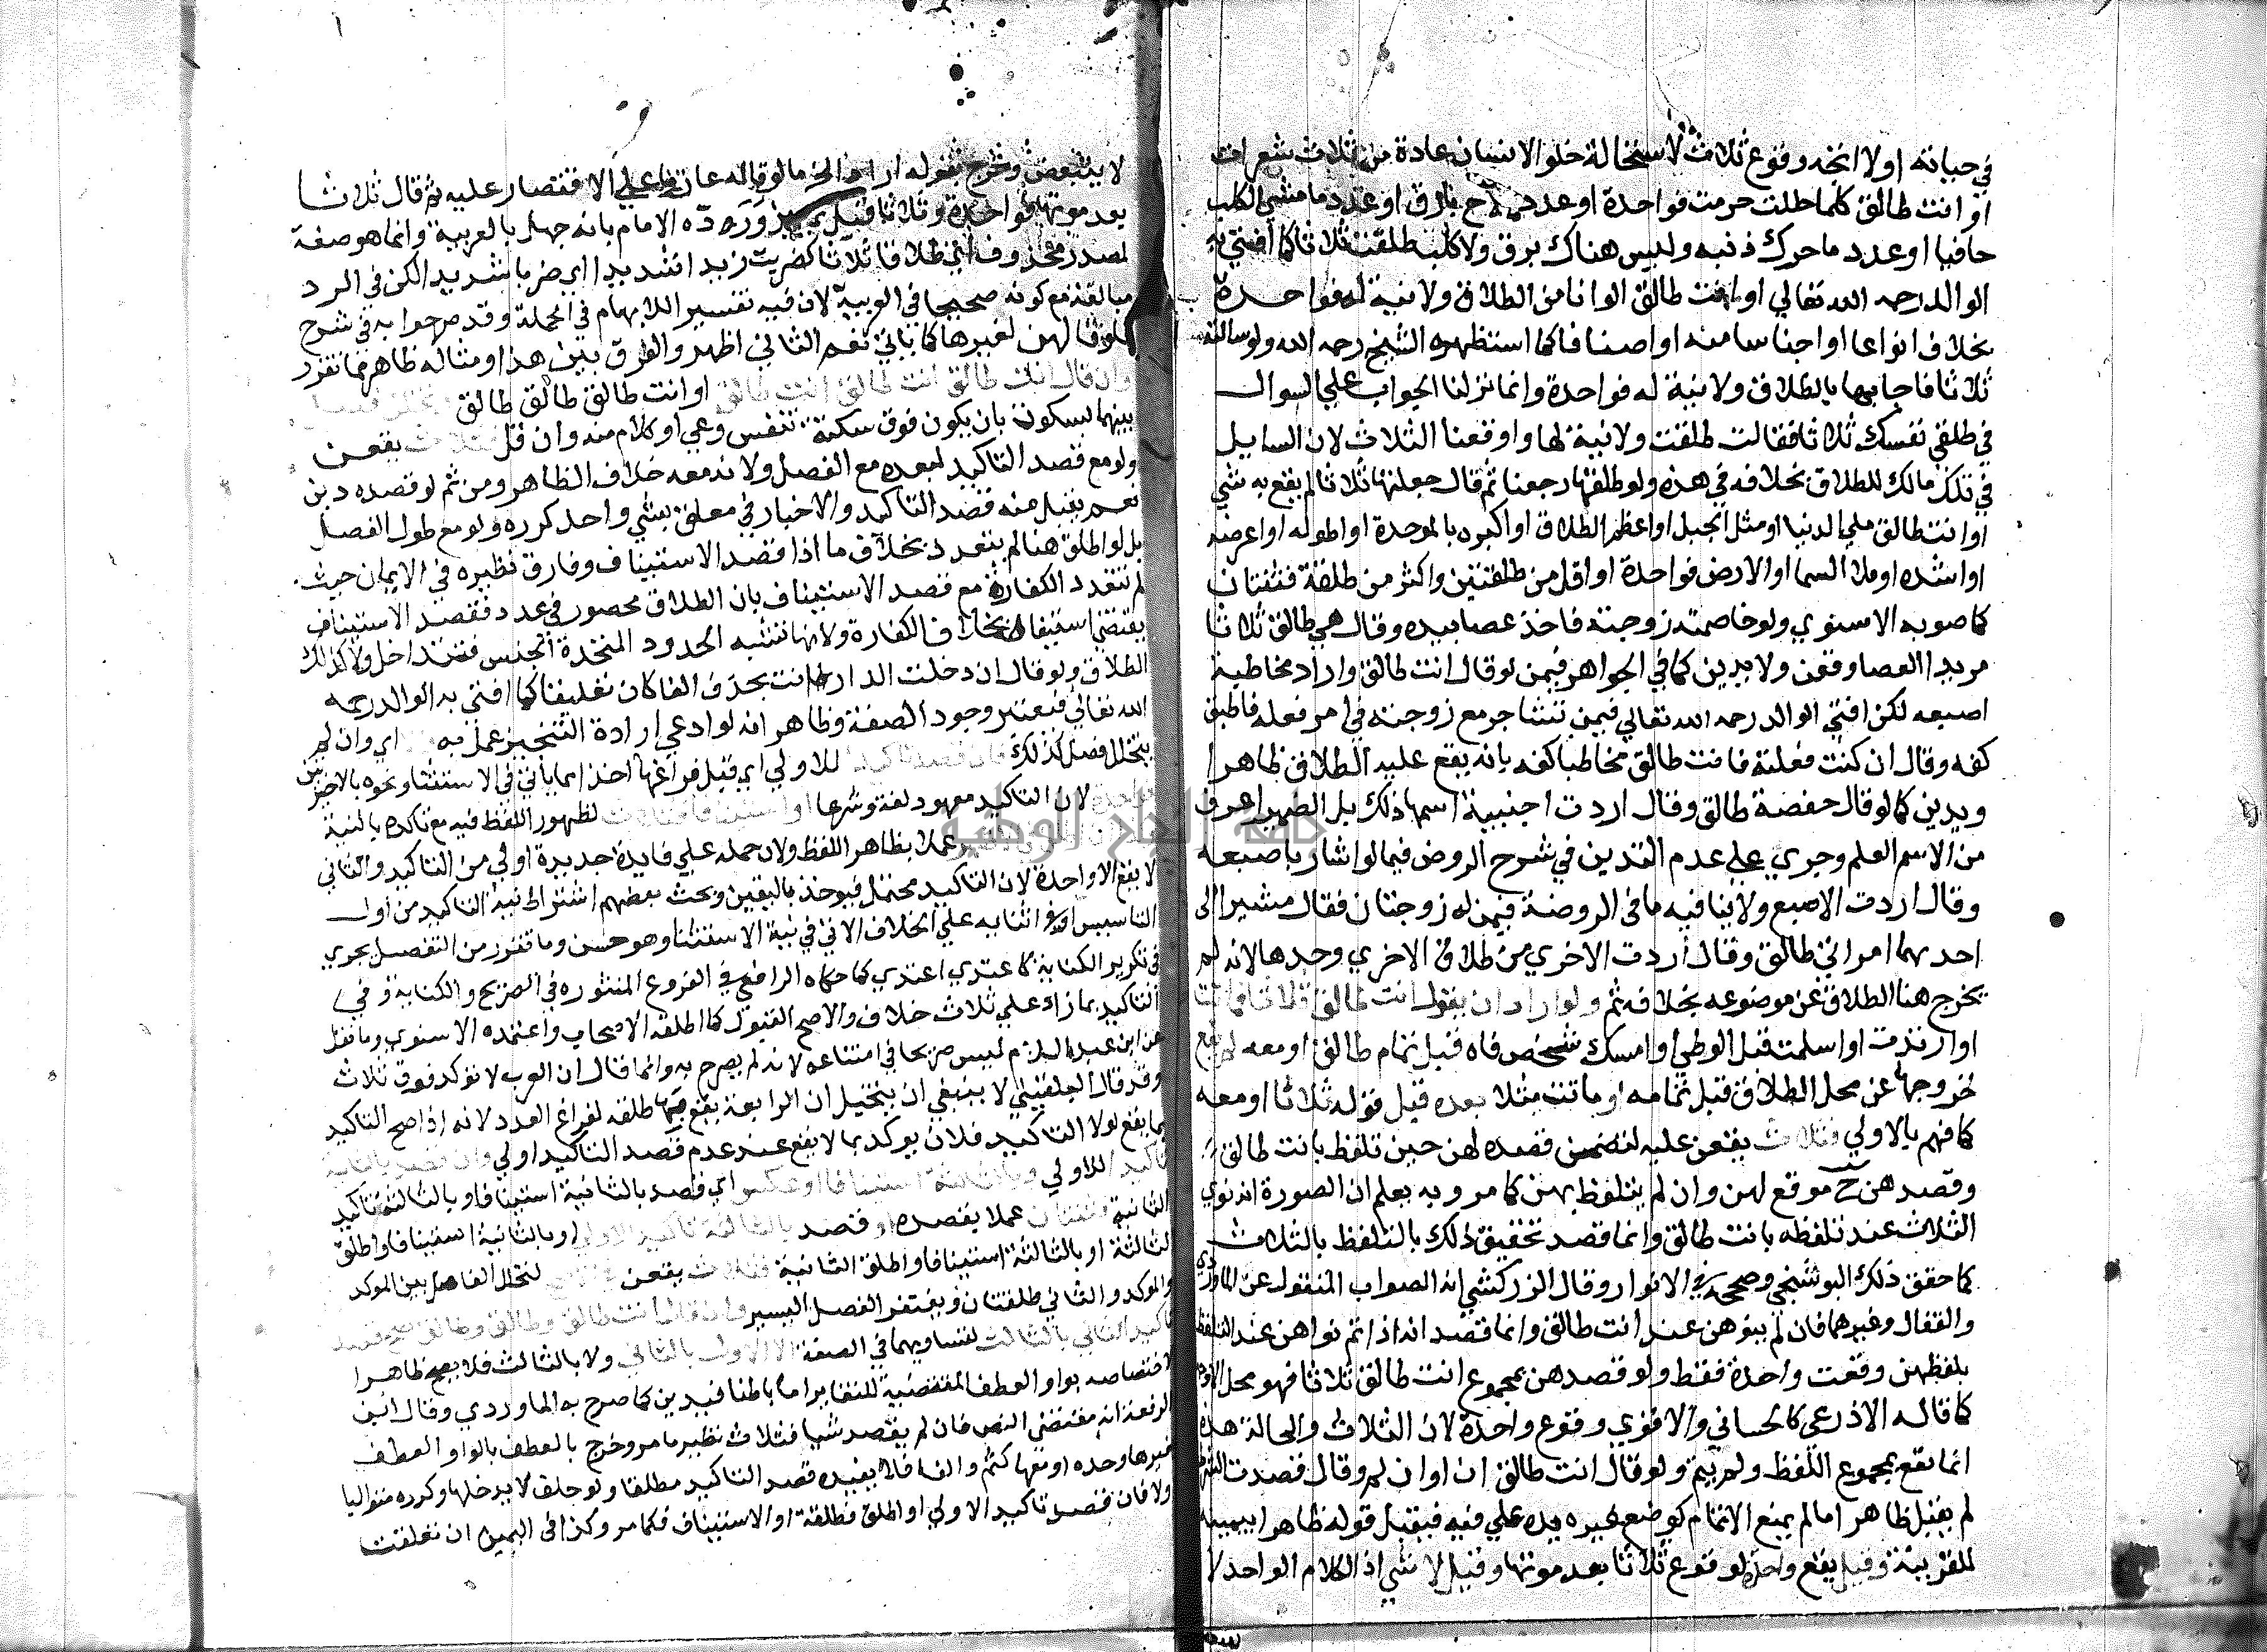 في حياته اولا اتجه وقوع ثلاث لاستحالة خلو الانسان عادة من ثلاث شعرات
او انت طالق كلما حللت حرمت فواحدة او عدد ما لاح بارق او عدد ما مشي الكلب
حافيا او عدد ما حرك ذنبه وليس هناك برق ولا كلب طلقت ثلاثا كما أفتي به
الوالد رحمه الله تعالي او انت طالق الوانا من الطلاق ولا نية له فواحدة
بخلاف انواعا او اجناسا منه او اصنافا كما استظهره الشيخ رحمه الله ولو سالته
ثلاثا فاجابها بالطلاق ولا نية له فواحدة وانما نزلنا الجواب علي السوال
في طلقي نفسك ثلاثا فقالت طلقت ولا نية لها واوقعنا الثلاث لان السايل
في تلك مالك للطلاق بخلافه في هذه ولو طلقها رجعنا ثم قال جعلتها ثلاثا لم يقع به شي
او انت طالق ملي الدنيا او مثل الجبل او اعظم الطلاق او اكبره بالموحدة او اطوله او اعرضه
او اشده او ملا السما او الارض فواحدة او اقل من طلقتين واكثر من طلقة فثنتان
كما صوبه الاسنوي ولو خاصمته زوجته فاخذ عصا بيده وقال هي طالق ثلاثا
مريدا العصا وقعن ولا يدين كما في الجواهر فيمن لو قال انت طالق واراد مخاطبة
اصبعه لكن افتي الوالد رحمه الله تعالي فيمن تشاجر مع زوجته في امر فعله فاطبق
كفه وقال ان كنت فعلته فانت طالق مخاطبا كفه بانه يقع عليه الطلاق ظاهرا
ويدين كما لو قال حفصة طالق وقال اردت اجنبية اسمها ذلك بل الضمير اعرف
من الاسم العلم وجري علي عدم التدين في شرح الروض فيما لو اشار باصبعه
وقال اردت الاصبع ولا ينافيه ما في الروضة فيمن له زوجتان فقال مشيرا الي
احدهما امراتي طالق وقال أردت الاخري من طلاق الاخري وحدها لانه لم
يخرج هنا الطلاق عن موضوعه بخلافه ثم ولو اراد ان يقول انت طالق ثلاثا فماتت
او ارتدت او اسلمت قبل الوطئ او امسك شخص فاه قبل تمام طالق او معه لم يقع
لخروجها عن محل الطلاق قبل تمامه او ماتت مثلا بعده قبل قوله ثلاثا او معه
كما فهم بالاولي فثلاث يقعن عليه لتضمن قصده لهن حين تلفظ بانت طالق
وقصدهن ح موقع لهن وان لم يتلفظ بهن كما مر وبه يعلم ان الصورة انه نوي
الثلاث عند تلفظه بانت طالق وانما قصد تحقيق ذلك بالتلفظ بالثلاث
كما حقق ذلك البوشنجي وصححه في الانوار وقال الزركشي انه الصواب المنقول عن الماوردي
والقفال وغيرهما فان لم ينوهن عند أنت طالق وانما قصد انه اذا تم نواهن عند التلفظ
بلفظهن وقعت واحدة فقط ولو قصدهن بمجموع انت طالق ثلاثا فهو محل الاوجه
كما قاله الاذرعي كالحساني والاقوي وقوع واحدة لان الثلاث والحالة هذه
انما تقع بمجموع اللفظ ولم يتم ولو قال انت طالق ان او ان لم وقال قصدت الشرط
لم يقبل ظاهرا ما لم يمنع الاتمام كوضع غيره يده علي فيه فيقبل قوله ظاهرا بيمينه
للقرينة وقيل يقع واحدة لوقوع ثلاثا بعد موتها وقيل لا شي اذ الكلام الواحد لا
لا يتبعض وخرج بقوله اراد الخ ما لو قاله عازما علي الاقتصار عليه ثم قال ثلاثا
بعد موتها فواحدة وثلاثا قيل تمييز ورده الامام بانه جهل بالعربية وانما هو صفة
لمصدر محذوف اي طلاقا ثلاثا كضربت زيدا شديدا اي ضربا شديدا لكن في الرد
مبالغة مع كونه صحيحا في العربية لان فيه تفسير اللابهام في الجملة وقد صرحوا به في شرح
لغيرها كما ياتي نعم الثاني اظهر والفرق بين هذا ومثاله ظاهر مما تقرر
وان قال انت طالق انت طالق انت طالق او انت طالق طالق طالق وتخلل فصل
بينهما لسكوت بان يكون فوق سكتة تنفس وعي او كلام منه وان قل فثلاث يقعن
ولو مع قصد التاكيد لبعده مع الفصل ولانه معه خلاف الظاهر ومن ثم لو قصده دين
نعم يقبل منه قصد التاكيد والاخبار في معلق بشي واحد كرره ولو مع طول الفصل
بل لو اطلق هنا لم يتعدد بخلاف ما اذا قصد الاستيناف وفارق نظيره في الايمان حيث
لم تتعدد الكفارة مع قصد الاستيناف بان الطلاق محصور في عدد فقصد الاستيناف
يقتضي استيفاه بخلاف الكفارة ولانها تشبه الحدود المتحدة الجنس فتتداخل ولا كذلك
الطلاق ولو قال ان دخلت الدار انت بحذف الفا كان تعليقا كما افتي به الوالد رحمه
الله تعالي فيعتبر وجود الصفة وظاهر انه لو ادعي ارادة التنجيز عمل به اي وان لم
يتخلل فصل كذلك فان قصد تاكيدا للاولي اي قبل فراغها اخذا مما ياتي في الاستثنا ونحوه بالاخيرتين
فواحدة لان التاكيد معهود لغة وشرعا او استينافا فثلاث لظهور اللفظ فيه مع تاكده بالنية
عملا بظاهر اللفظ ولان حمله علي فايدة جديدة اولي من التاكيد والثاني
لا يقع الا واحدة لان التاكيد محتمل فيوخذ باليقين وبحث بعضهم اشتراط نية التاكيد من اول
التاسيس او في اثنايه علي الخلاف الاتي في نية الاستثنا وهو حسن وما تقرر من التفصيل يجري
في تكرير الكناية كاعتدي اعتدي كما حكاه الرافعي في الفروع المنثورة في الصريح والكناية وفي
التاكيد بما زاد علي ثلاث خلاف والاصح القبول كما اطلقه الاصحاب واعتمده الاسنوي وما نقل
عن ابن عبد السلام ليس صريحا في امتناعه لانه لم يصرح به وانما قال ان العرب لا توكد فوق ثلاث
وقد قال البلقيني لا ينبغي ان يتخيل ان الرابعة يقع بها طلقه لفراغ العدد لانه اذا صح التاكيد
بما يقع لولا التاكيد فلان يوكد بما لا يقع عند عدم قصد التاكيد اولي وان قصد بالثانية
تاكيد الاولي وبالثالثة استينافا او عكس اي قصد بالثانية استينافا وبالثالثة تاكيد
الثانية فثنتان عملا بقصده او قصد بالثالثة تاكيد الاولي او بالثانية استينافا واطلق
الثالثة او بالثالثة استينافا واطلق الثانية فثلاث يقعن لتخلل الفاصل بين الموكد
والموكد والثاني طلقتان ويغتفر الفصل اليسير وان قال أنت طالق وطالق وطالق صح قصد
تاكيد الثاني بالثالث لتساويهما في الصفة لا الاول بالثاني ولا بالثالث فلا يصح ظاهرا
لاختصاصه بواو العطف المقتضية للتغاير اما باطنا فيدين كما صرح به الماوردي وقال ابن
الرفعة انه مقتضي النص فان لم يقصد شيا فثلاث نظير ما مر وخرج بالعطف بالواو العطف
بغيرها وحده او معها كثم والفا فلا يفيده قصد التاكيد مطلقا ولو حلف لا يدخلها وكرره متواليا
ولا فان قصد تاكيد الاولي او اطلق فطلقة او الاستيناف فكما مر وكذا في اليمين ان تعلقت